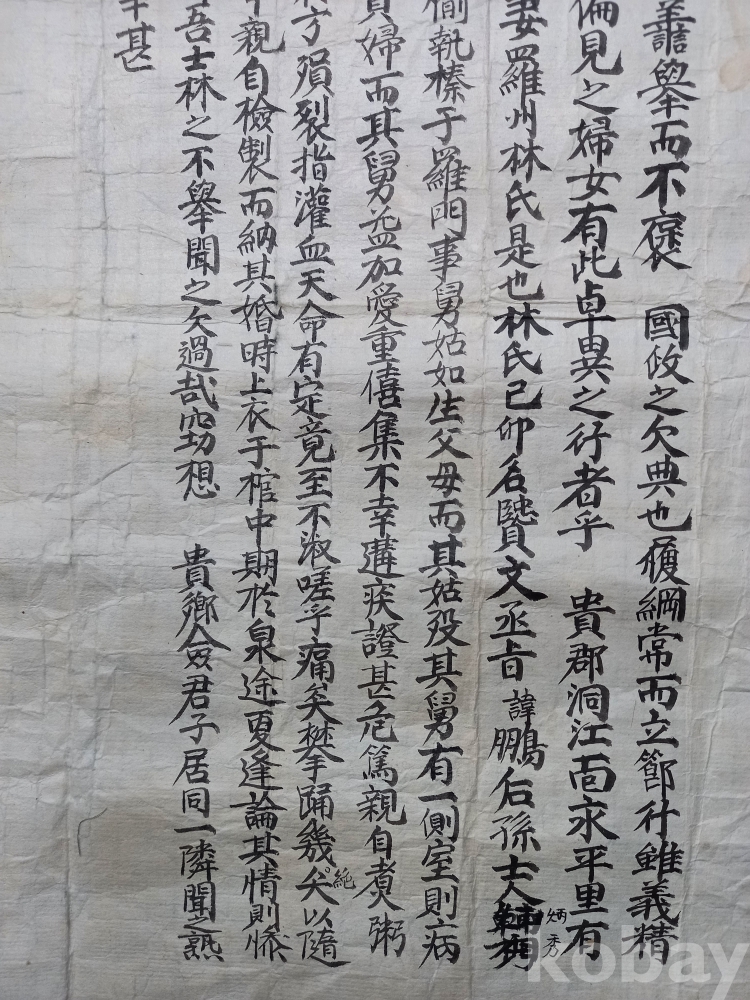 善譽而不褒 國政之欠典也夜綱常而立節行雖義精
偏見之婦女有此卓異之行者乎 貴郡洞江面永平里有
妻羅州林氏是也林氏己卯名賢文丞旨諱鵬后孫士人炳秀
執榛于羅門事舅姑如生父母而其姑歿其舅有一側室則病
婦而其舅益加愛重僖集不幸遘疾證甚危篤親自煮粥
方殞裂指灌血天命有定竟至不淑嗟乎痛矣擗踊幾絶矢以隨
親自檢製而納其婚時上衣于棺中期於泉途更逢論其情則慘
吾士林之不擧聞之欠過哉窃想 貴鄕僉君子居同一隣聞之熟
幸甚
kobay